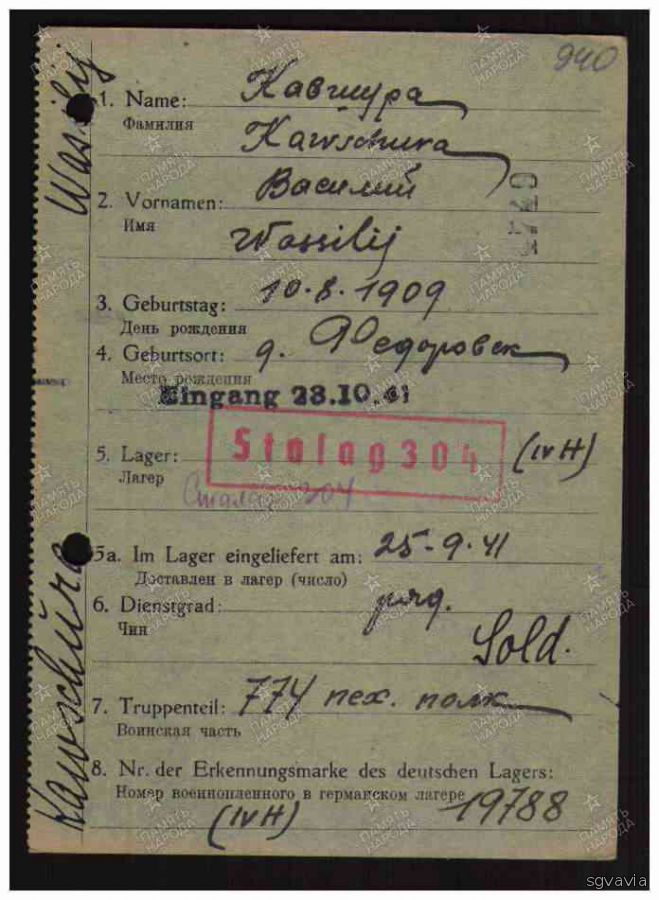 940
1. Name: Кавшура
Фамилия
Kawschura
2. Vornamen: Василий
Имя
Wassilij
3. Geburtstag: 10.8.1909
День рождения
4. Geburtsort: д. Федоровск
Место рождения
Eingang 23.10.41
5. Lager: Stalag 304 (IV H)
Лагер
Сталаг 304
5a. Im Lager eingeliefert am: 25-9-41
Доставлен в лагер (число)
6. Dienstgrad: ряд.
Чин
Sold.
7. Truppenteil: 774 пех. полк
Воинская часть
8. Nr. der Erkennungsmarke des deutschen Lagers:
Номер военнопленного в германском лагере 19788
(IV H)
Kawschura
Wassilij
ПАМЯТЬ НАРОДА
sgvavia